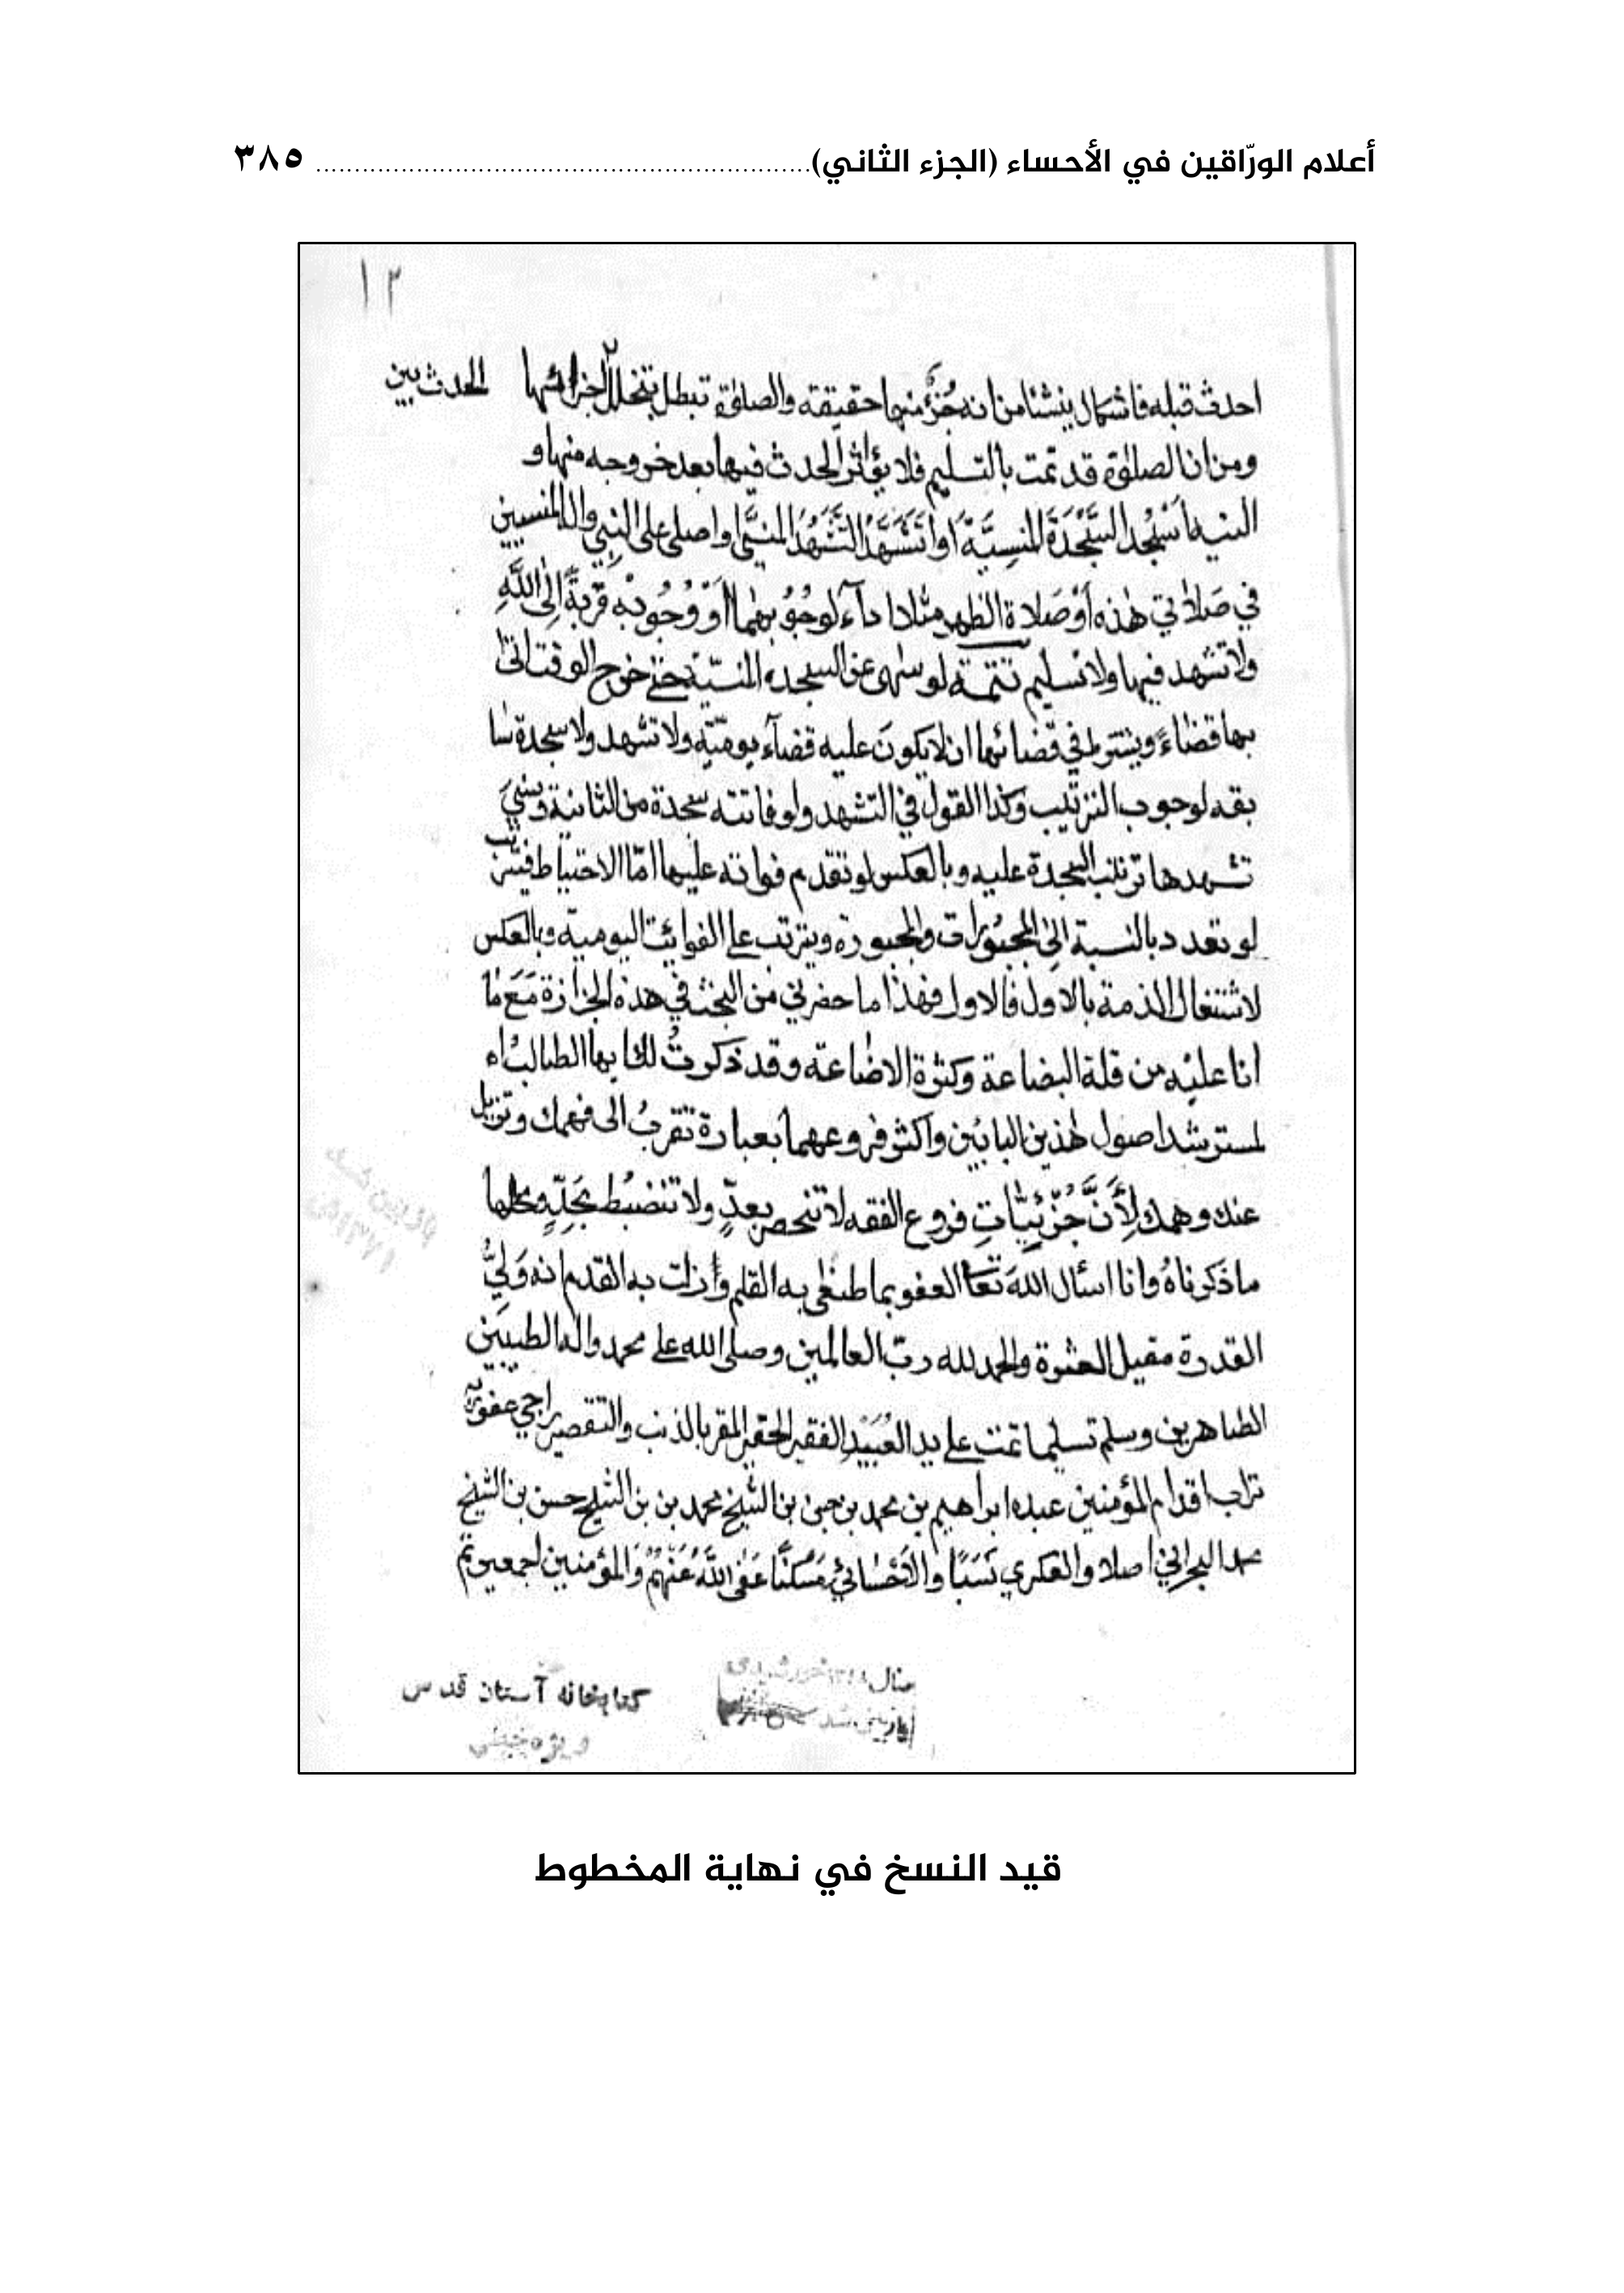 أعلام الورّاقين في الأحساء (الجزء الثاني)............................................................... ٣٨٥
١٣
احدث قبله فاشكال ينشئا من انه جُزؤ منها حقيقته والصلوٰة تبطل بتخلل الحدث بين اجزائها
ومن ان الصلوٰة قد تمت بالتسليم فلا يؤاثر الحدث فيها بعد خروجه منها و
النيه اَسْجُد السَّجْدَةَ المنسِيَّةَ اَو اَتَشَهَّدُ التَّشَهُدَ المنسَّى او اصلى على النبِي واٰله المنسيين
في صَلاٰتي هٰذه أوْ صَلاة الظهر مثلا اداءً لوجُوُبهما اَوْ وُجُوبه قربةً اِلى اللَّهِ
ولا تشهد فيها ولا تسليم تتمة لو سهى عن السجده المنسيّة حتى خرج الوقت اتىٰ
بها قضاءً ويشترط في قضائهما ان لا يكونَ عليه قضآء يوميّة ولا تشهد ولا سجدة سٰا
بقه لوجوب الترتيب وكذا القول في التشهد ولو فاتته سجدة من الثانية ونسِيَ
تشهدها ترتب السجدة عليه وبالعكس لو تقدم فواته عليها امّا الاحتياط فيترتب
لو تعدد بالنسبة اِلىٰ المجبُورات والمجبورة ويترتب على الفوائت اليوميّة وبالعكس
لاشتغال الذمة بالاول فالاول فهذا ما حضرني من البحث في هذه الجزازة مَعَ مٰا
انا عليْهِ من قلة البضاعة وكثرة الاضٰاعة وقد ذكرتُ لك ايها الطالب اه
لمسترشد اصول هٰذين البابَيْن واكثر فروعهما بعبارة تقربُ الى فهمك وتزيل
عنك وهمك لِأَنَّ جُزْئِيّٰاتِ فروع الفقه لا تنحصر بعدٍّ ولا تنضبُط بحَدٍّ
ما ذكرناهُ وانا اسئال اللهَ تعا العفو بما طغٰى به القلم وأزلت به القدم انه وَليُّ
القدرة مقيل العثرة والحمد لله ربّ العالمين وصلى الله على محمد واٰله الطيبَين
الطاهرين وسلم تسليما تمت على يد العُبَيْدِ الفقير الحقير المقر بالذنب والتقصير راجي عفو
تراب اقدام المؤمنين عبده ابراهيم بن محمد بن بن الشيخ محمد بن بن الشيخ حسن بن الشيخ
محمد البحراني اصلا والعكري نَسَبًا والاَحْسٰائي مَسْكنًا عَفى اللَّهُ عَنْهُمْ وَالمؤمنين اجمعين تم
كتابخانه آستان قدس
قيد النسخ في نهاية المخطوط